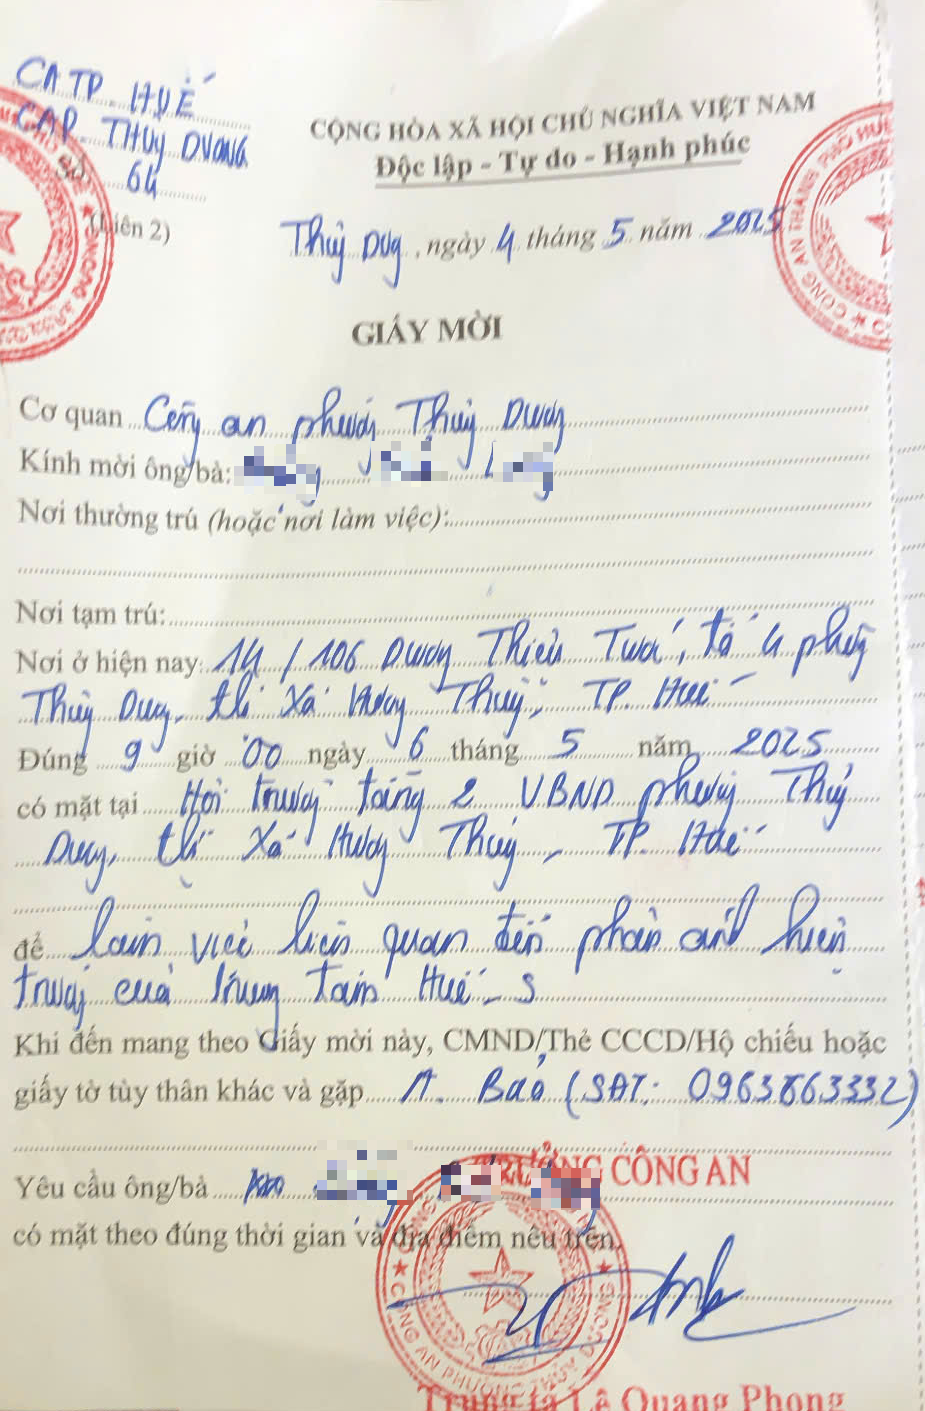 CA TP. HUẾ
CAP. THỦY DƯƠNG
Số 64
(Liên 2)
CỘNG HÒA XÃ HỘI CHỦ NGHĨA VIỆT NAM
Độc lập - Tự do - Hạnh phúc
Thủy Dương, ngày 4 tháng 5 năm 2025
GIẤY MỜI
Cơ quan Công an phường Thủy Dương
Kính mời ông/bà:
Nơi thường trú (hoặc nơi làm việc):
Nơi tạm trú:
Nơi ở hiện nay: 14/106 Dương Thiệu Tước, tổ 4 phường
Thủy Dương, thị xã Hương Thủy, TP. Huế
Đúng 9 giờ 00 ngày 6 tháng 5 năm 2025
có mặt tại Hội trường tầng 2 UBND phường Thủy
Dương, thị xã Hương Thủy, TP. Huế
để làm việc liên quan đến phản ánh hiện
trường của trung tâm Huế - S
Khi đến mang theo Giấy mời này, CMND/Thẻ CCCD/Hộ chiếu hoặc
giấy tờ tùy thân khác và gặp Đ. Bảo (SĐT: 0963863332)
Yêu cầu ông/bà
có mặt theo đúng thời gian và địa điểm nêu trên.
TRƯỞNG CÔNG AN
CÔNG AN PHƯỜNG THỦY
Trung tá Lê Quang Phong